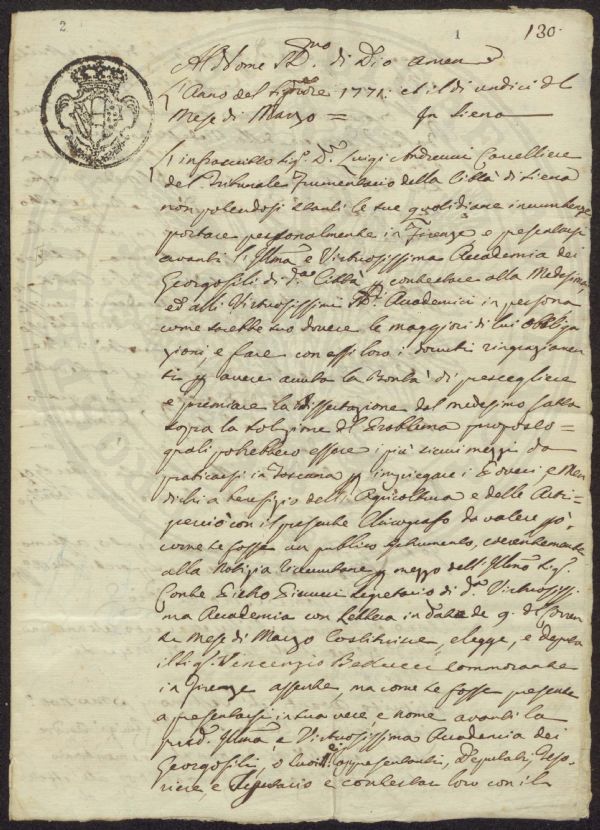 2
1
130.
Al Nome SS.mo di Dio Amen
L'Anno del Signore 1771: et il dì undici del
Mese di Marzo = In Siena
L'infrascritto Sig.r D.r Luigi Andreucci Cancelliere
del Tribunale Frumentario della Città di Siena
non potendosi stanti le sue quotidiane incumbenze
portare personalmente in Firenze e presentarsi
avanti l'Ill.ma e Virtuosissima Accademia dei
Georgofili di d.a Città p contestare alla Medesima,
ed alli Virtuosissimi SS.ri Accademici in persona
come sarebbe suo dovere le maggiori di lui obbliga
zioni e fare con essi loro i dovuti ringraziamen
ti p avere avuta la Bontà di prescegliere
e premiare la Dissertazione dal medesimo fatta
sopra la soluzione del Problema proposto =
quali potrebbero essere i più sicuri mezzi da
praticarsi in Toscana p impiegare i Poveri, e Men
dichi a benefizio dell'Agricoltura e delle Arti =
perciò con il presente Chirografo da valere p.ò,
come se fosse un publico Istrumento, coerentemente
alla Notizia p mezzo dell'Ill.mo Sig.r
Conte Segretario di d.a Virtuosissi
ma Accademia con Lettera in data de 9. del corren
te Mese di Marzo Costituisce, elegge, e deputa
il Sig.r Vincenzio Bellucci commorante
in Firenze assente, ma come se fosse presente
a presentarsi in sua vece, e nome avanti la
pred.a Ill.ma, e Virtuosissima Accademia dei
Georgofili, o suoi Rappresentanti, Deputati, Teso-
riere, e Segretario e contestar loro con il